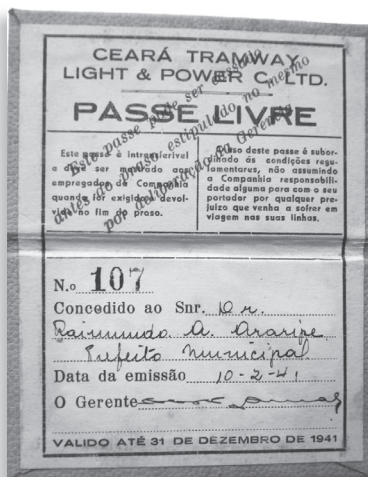 CEARÁ TRAMWAY
LIGHT & POWER C. LTD.
PASSE LIVRE
Este passe pode ser cassado
antes do praso estipulado no mesmo
por deliberação da Gerencia
Este passe é intransferivel
e deve ser mostrado aos
empregados da Companhia
quando for exigido e devol-
vido no fim do praso.
O uso deste passe é subor-
dinado ás condições regu-
lamentares, não assumindo
a Companhia responsabili-
dade alguma para com o seu
portador por qualquer pre-
juizo que venha a sofrer em
viagem nas suas linhas.
N.o 107
Concedido ao Snr. Dr.
Raimundo A. Araripe
Prefeito Municipal
Data da emissão 10-2-41
O Gerente
VALIDO ATÉ 31 DE DEZEMBRO DE 1941